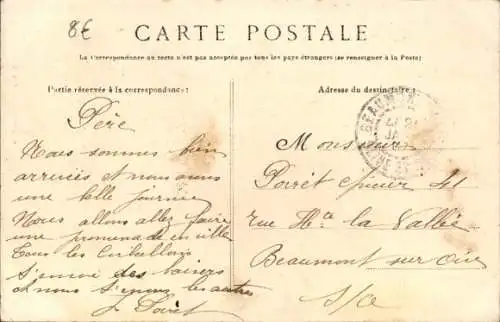 8€
CARTE POSTALE
La Correspondance au recto n'est pas acceptée par tous les pays étrangers (se renseigner à la Poste)
Partie réservée à la correspondance:
Adresse du destinataire:
BEAUMONT
Père
Nous sommes bien
arrivés et nous avons
une belle journée
Nous allons allez faire
une promenade en ville
Tous les
S'envoi des baisers
et nous S'enous les autres
Poiret
Monsieur
Poirét 41
rue Hte la Vallée
Beaumont sur Oise
S/O